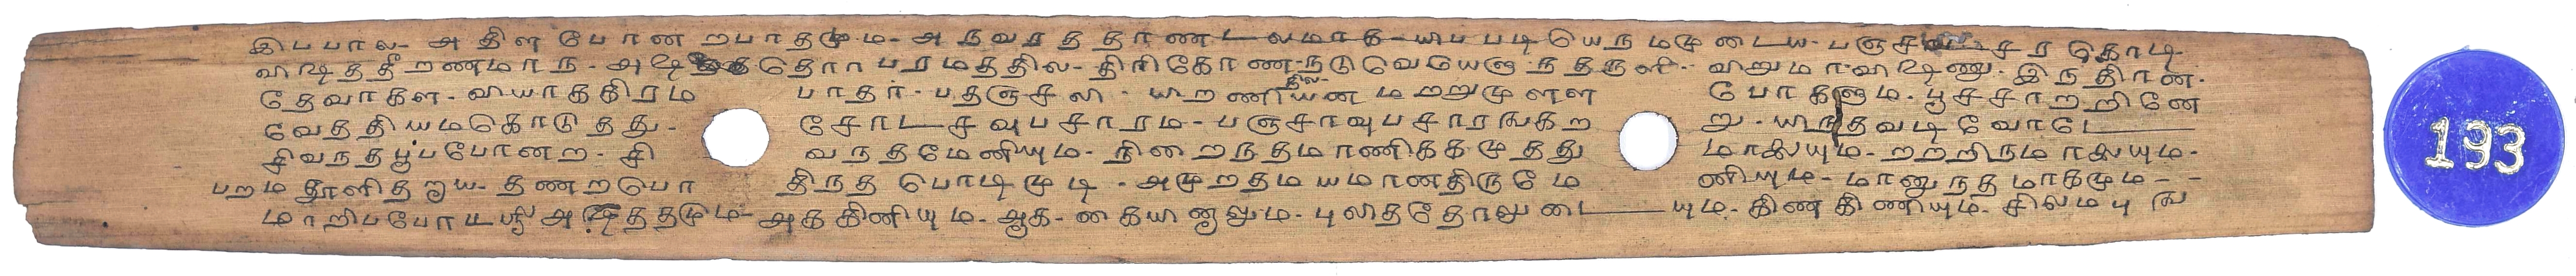 இபபால- அதின போன றபாதமும- அநவரத தாணடலமாக-யிபபடி யெநமமுடைய- பஞச சர கொடி
விஷத தீறணமான- பரமத்தில- திரிகோண-நடுவெயெழு நதருளி- விறுமா-விஷணு- இநதிரன-
தேவாகள- வியாககிரம பாதர- பதஞசலி- யிறணியன மறறுமுளள போகளும- பூசசாறறினே
வேததியமகொடுதது- சோடசவுபசாரம- பஞசாவுபசாரஙகற று- யிநதவடிவோடே
சிவநதபூபபோனற- சி வநதமேனியும- நிறைநதமாணிககமுதது மாலையும- றறறிநமாலையும-
பறமதூளிதறுய- தணறபொ திநத பொடிமுடி- அமுறதமயமானதிருமே னியும- மானுநதமாகமும--
மாறிபபோ அககினியும- ஆக- கையினுலும- புலிததோலுடையும- கிணகிணியும- சிலமபுங
193